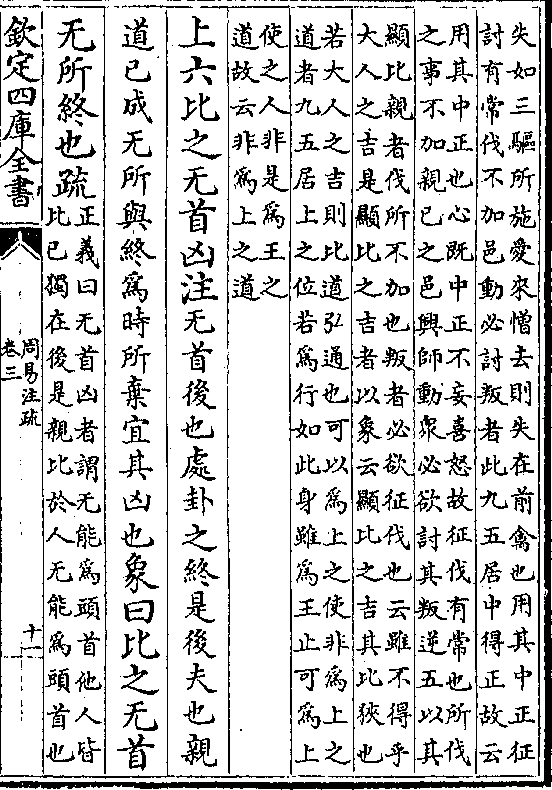 失如三驅所施愛來憎去則失在前禽也用其中正征
討有常伐不加邑動必討叛者此九五居中得正故云
用其中正也心既中正不妄喜怒故征伐有常也所伐
之事不加親己之邑興師動衆必欲討其叛逆五以其
顯比親者伐所不加也叛者必欲征伐也云雖不得乎
大人之吉是顯比之吉者以象云顯比之吉其比狹也
若大人之吉則比道弘通也可以為上之使非為上之
道者九五居上之位若為行如此身雖為王止可為上
使之人非是為王之
道故云非為上之道
上六比之无首凶注无首後也處卦之終是後夫也親
道已成无所與終為時所棄宜其凶也象曰比之无首
无所終也疏
正義曰无首凶者謂无能為頭首他人皆
比己獨在後是親比於人无能為頭首也
欽定四庫全書
周易注疏
卷三
十一